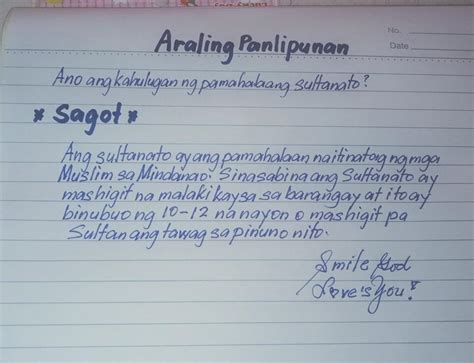 No.
Date
Araling Panlipunan
Ano ang kahulugan ng pamahalaang sultanato?
* Sagot *
Ang sultanato ay ang pamahalaan na itinatag ng mga
Muslim sa Mindanao. Sinasabi na ang Sultanato ay
mas higit na malaki kaysa sa barangay at ito ay
binubuo ng 10-12 na nayon o mas higit pa
Sultan ang tawag sa pinuno nito.
Smile God
Love's You!